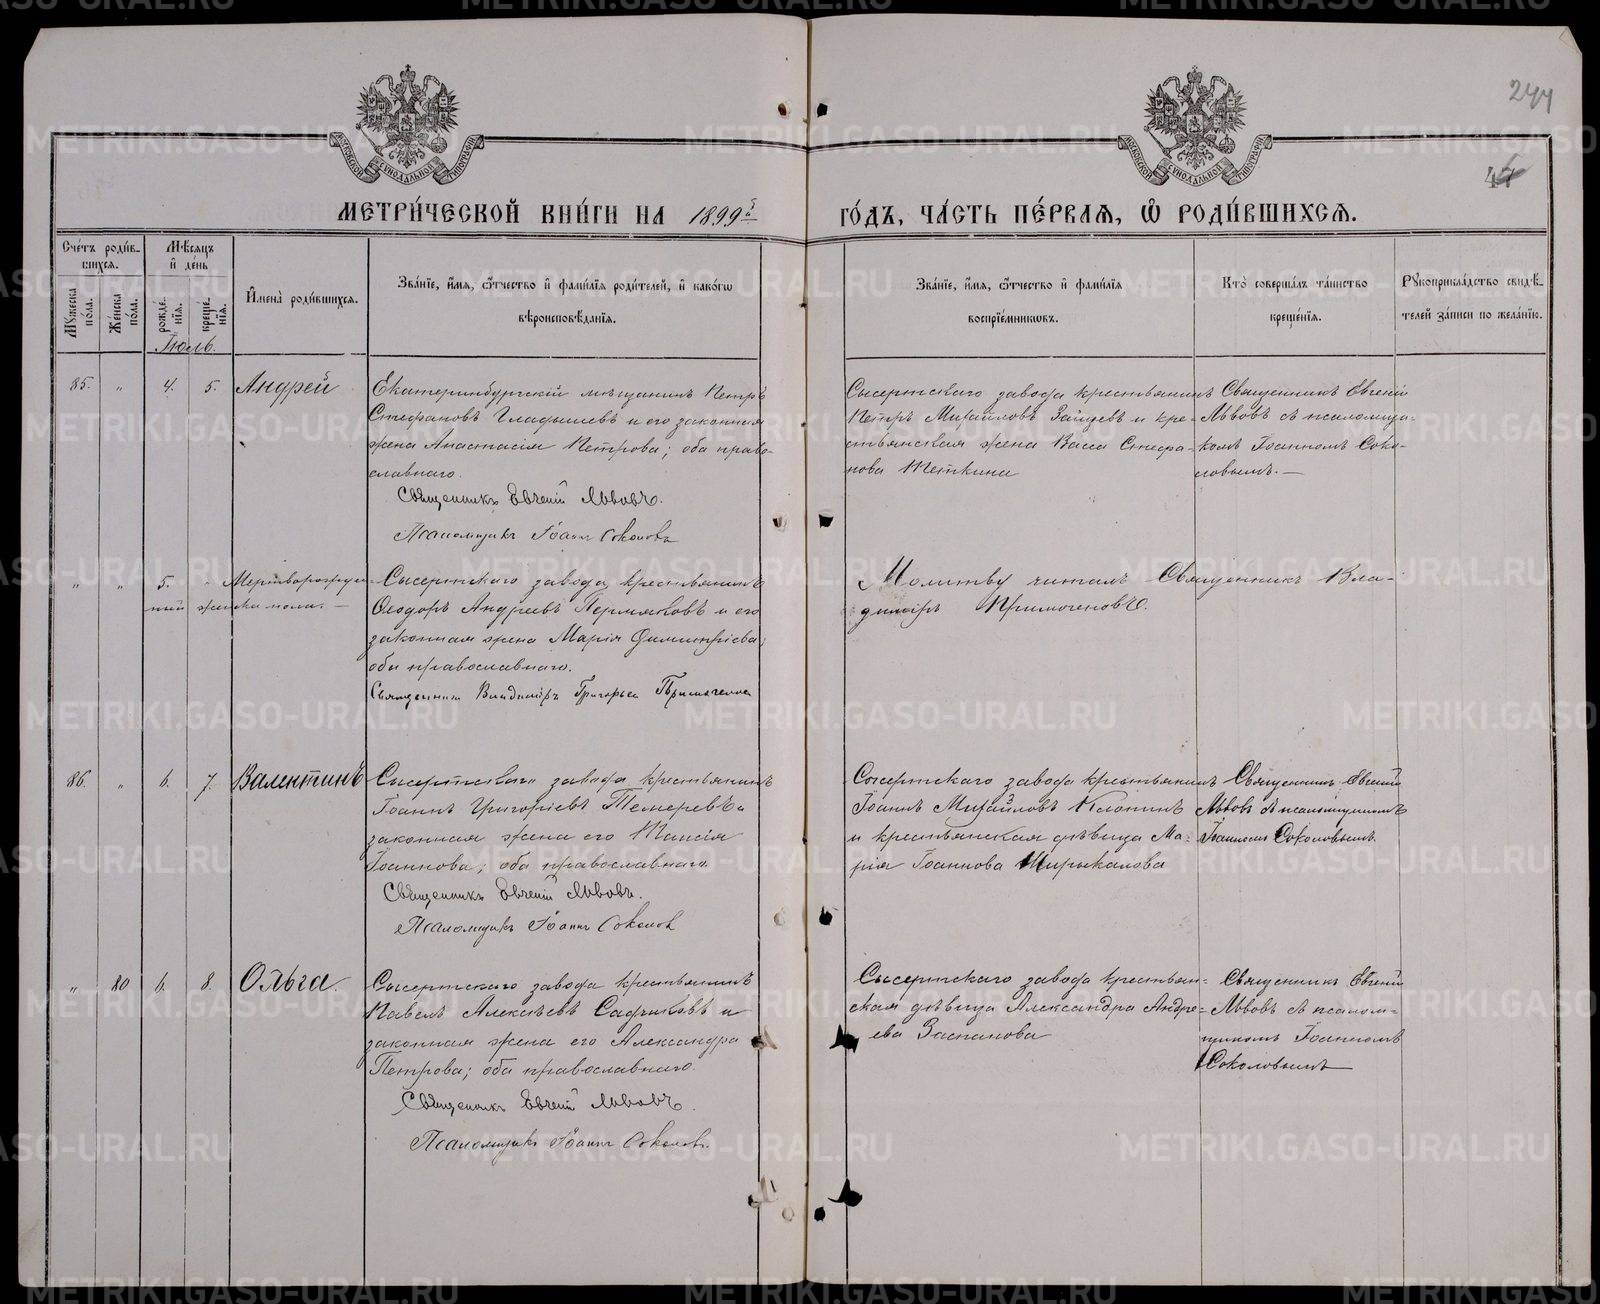 244
47
МЕТРИ́ЧЕСКОЙ КНИ́ГИ НА 1899й ГО́ДЪ, ЧА́СТЬ ПЕ́РВАЯ, Ѿ РОДИ́ВШИХСЯ.
Сче́тъ роди́вшихся.
Мужеска по́ла.
Же́нска по́ла.
Мѣ́сяцъ и де́нь
рожде́нія.
креще́нія.
Имена̀ роди́вшихся.
Зва́ніе, и́мя, о́тчество и фами́лія роди́телей, и како́гѡ
вѣроисповѣ́данія.
Зва́ніе, и́мя, о́тчество и фами́лія
воспріе́мниковъ.
Кто̀ соверша́лъ та́инство
креще́нія.
Рукоприкла́дство свидѣ́-
телей за́писи по жела́нію.
Іюль.
85. " 4. 5. Андрей
Екатеринбургскій мѣщанинъ Петръ
Стефановъ Гладышевъ и его законная
жена Анастасія Петрова; оба право-
славнаго.
Священникъ Евгеній Львовъ.
Псаломщикъ Іоаннъ Соколовъ
Сысертскаго завода крестьянинъ
Петръ Михайловъ Зайцевъ и кре-
стьянская жена Васса Стефа-
нова Теткина
Священникъ Евгеній
Львовъ съ псаломщи-
комъ Іоанномъ Соко-
ловымъ. —
" " 5. " Мертворожден-
ный женска пола. —
Сысертскаго завода крестьянинъ
Ѳеодоръ Андреевъ Пермяковъ и его
законная жена Марія Димитріева;
оба православнаго.
Священникъ Владиміръ Григорьев Примогенов
Молитву читалъ Священникъ Вла-
диміръ Примогеновъ.
86. " 6. 7. Валентинъ
Сысертскаго завода крестьянинъ
Іоаннъ Григоріевъ Темеревъ и
законная жена его Таисія
Іоаннова; оба православнаго.
Священникъ Евгеній Львовъ.
Псаломщикъ Іоаннъ Соколов
Сысертскаго завода крестьянинъ
Іоаннъ Михайловъ Клопинъ
и крестьянская дѣвица Ма-
рія Іоаннова Ширыкалова
Священникъ Евгеній
Львовъ съ псаломщикомъ
Іоанномъ Соколовымъ.
" 80 6. 8. Ольга.
Сысертскаго завода крестьянинъ
Павелъ Алексѣевъ Садчиковъ и
законная жена его Александра
Петрова; оба православнаго.
Священникъ Евгеній Львовъ.
Псаломщикъ Іоаннъ Соколовъ.
Сысертскаго завода крестьян-
ская дѣвица Александра Андре-
ева Заспанова
Священникъ Евгеній
Львовъ съ псалом-
щикомъ Іоанномъ
Соколовымъ —
METRIKI.GASO-URAL.RU